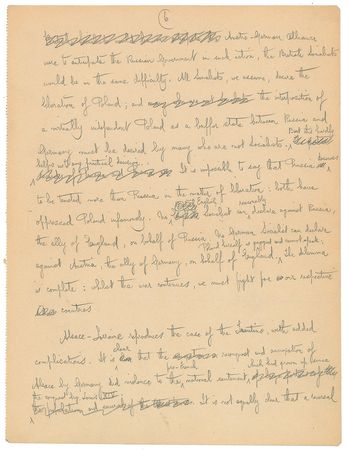 6
Austro-German alliance
were to anticipate the Russian Government in such action, the British Socialists
would be in the same difficulty. All Socialists, we assume, desire the
liberation of Poland; and the interposition of
a virtually independent Poland as a buffer state between Russia and
Germany must be desired by many who are not Socialists. But this hardly
helps with any practical
It is impossible to say that Prussia is
to be trusted more than Russia in the matter of liberation: both have
oppressed Poland infamously. No English Socialist can declare against Russia,
the ally of England, on behalf of Russia. No German Socialist can declare
against Austria, the ally of Germany, on behalf of England. Poland herself is gagged and cannot speak. The dilemma
is complete: whilst the war continues, we must fight for our respective
countries.
Alsace-Lorraine reproduces the case of the Trentino, with added
complications. It is clear that the conquest and annexation of
Alsace by Germany did violence to the pro-French national sentiment, which had grown up since
the conquest by Louis
It is not equally clear that a reversal